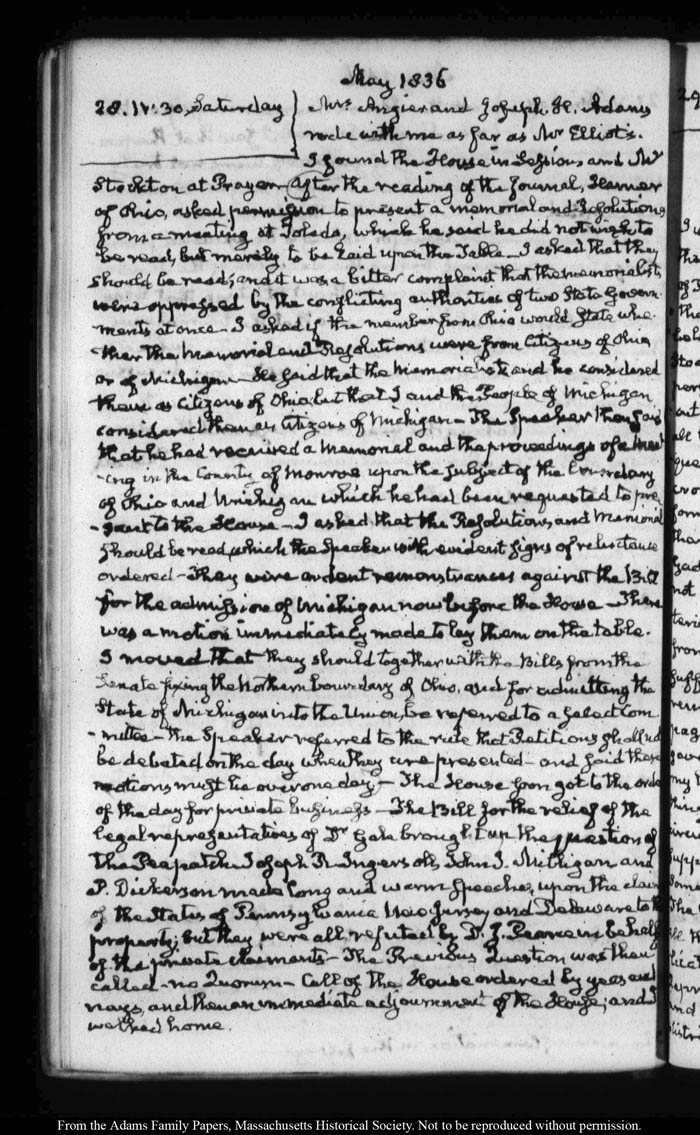 May 1836
28. IV:30. Saturday
Mrs Angier and Joseph H. Adams
rode with me as far as Mr Elliot's.
I found the House in Session, and Mr
Stockton at Prayer. After the reading of the Journal, Hamer
of Ohio, asked permission to present a memorial and Resolutions
from a meeting at Toledo, which he said he did not wish to
be read, but merely to be laid upon the Table_ I asked that they
should be read; and it was a bitter complaint that the memorialists
were oppressed by the conflicting authorities of two State Govern-
ments at once_ I asked if the member from Ohio would State whe-
ther the Memorial and Resolutions were from Citizens of Ohio
or of Michigan_ He said that the Memorialists and he considered
them as Citizens of Ohio but that I and the People of Michigan
considered them as Citizens of Michigan_ The Speaker then said
that he had received a Memorial and the proceedings of a meet-
-ing in the County of Monroe upon the subject of the boundary
of Ohio and Michigan which he had been requested to pre-
-sent to the House_ I asked that the Resolutions, and Memorial
should be read, which the Speaker with evident signs of reluctance
ordered_ They were ardent remonstrances against the Bill
for the admission of Michigan now before the House_ There
was a motion immediately made to lay them on the table.
I moved that they should together with the Bills from the
Senate fixing the Northern boundary of Ohio, and for admitting the
State of Michigan into the Union, be referred to a Select Com
-mittee_ the Speaker referred to the rule that Petitions shall not
be debated on the day when they are presented_ and said these
motions must lie over one day_ The House soon got to the order
of the day for private business_ The Bill for the relief of the
legal representatives of Dr Gale brought up the question of
the Peapatch. Joseph R. Ingersoll, John J. Milligan and
P. Dickerson made long and warm speeches, upon the claim
of the States of Pennsylvania New Jersey and Delaware to the
property; but they were all refuted by D. J. Pearce in behalf
of the private claimants_ The Previous Question was then
called_ no Quorum_ Call of the House ordered by yeas and
nays, and then an immediate adjournment of the House; and I
walked home.
From the Adams Family Papers, Massachusetts Historical Society. Not to be reproduced without permission.